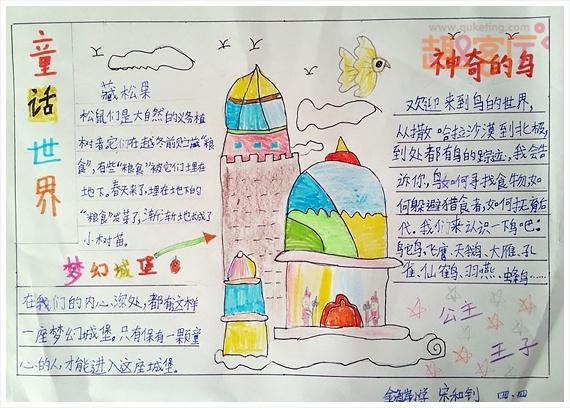 www.quketing.com
趣客厅
童话世界
藏松果
松鼠们是大自然的义务植
树者,它们在越冬前贮藏“粮
食”,有些“粮食”被它们埋在
地下。春天来了,埋在地下的
“粮食”发芽了,渐渐地成了
小树苗。
梦幻城堡
在我们的内心深处,都有这样
一座梦幻城堡。只有保有一颗童
心的人,才能进入这座城堡。
神奇的鸟
欢迎来到鸟的世界,
从撒哈拉沙漠到北极,
到处都有鸟的踪迹。我会告
诉你,鸟如何寻找食物,如
何躲避猎食者,如何抚育后
代。我们来认识一下鸟吧:
鸵鸟、飞鹰、天鹅、大雁、孔
雀、仙鹤、羽燕、蜂鸟……
公主
王子
小学 宋和钊 四.四